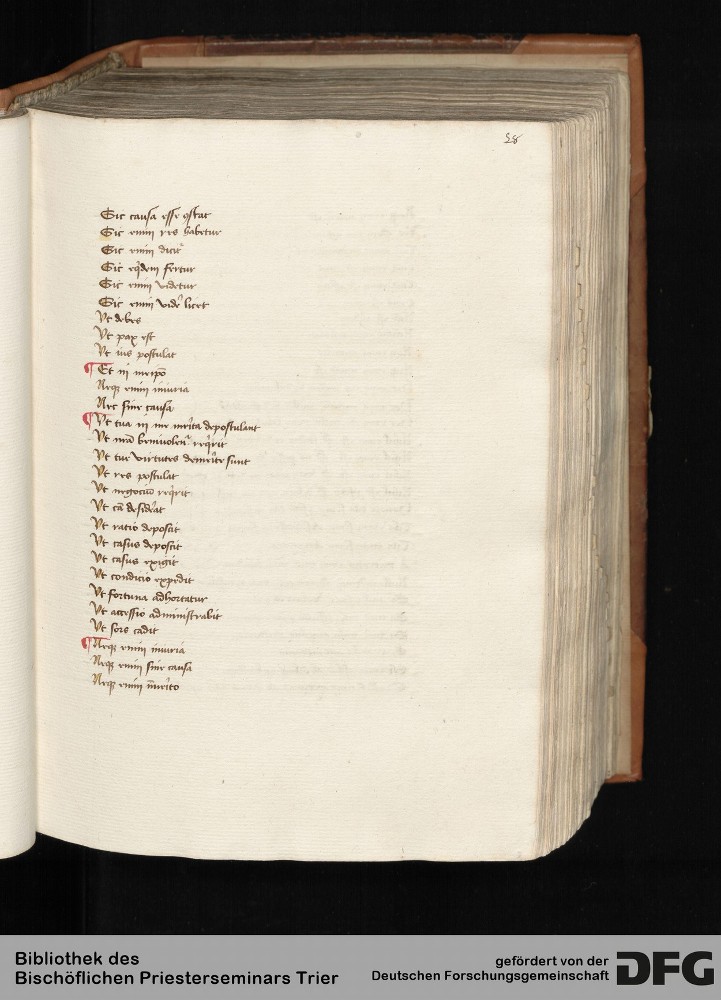 28
Sic causa esse ꝯstat
Sic enim res habetur
Sic enim dicit᷑
Sic eq̇dem fertur
Sic enim videtur
Sic enim videˀ licet
Vt debes
Vt pax est
Vt ius postulat
¶ Et ni
Neqꝫ enim iniuria
Nec sine causa
¶ Vt tua in me mˀita depostulant
Vt nr̄a beniuolen reqˀrit
Vt tue virtutes
Vt res postulat
Vt negociū reqˀrit
Vt cā desidˀat
Vt ratio deposcit
Vt casus deposcit
Vt casus exigit
Vt condicio expedit
Vt fortuna adhortatur
Vt accessio administrabit
Vt sors cadit
¶ Neqꝫ enim iniuria
Neqꝫ enim sine causa
Neqꝫ enim īmˀito
Bibliothek des
Bischöflichen Priesterseminars Trier
gefördert von der
Deutschen Forschungsgemeinschaft
DFG